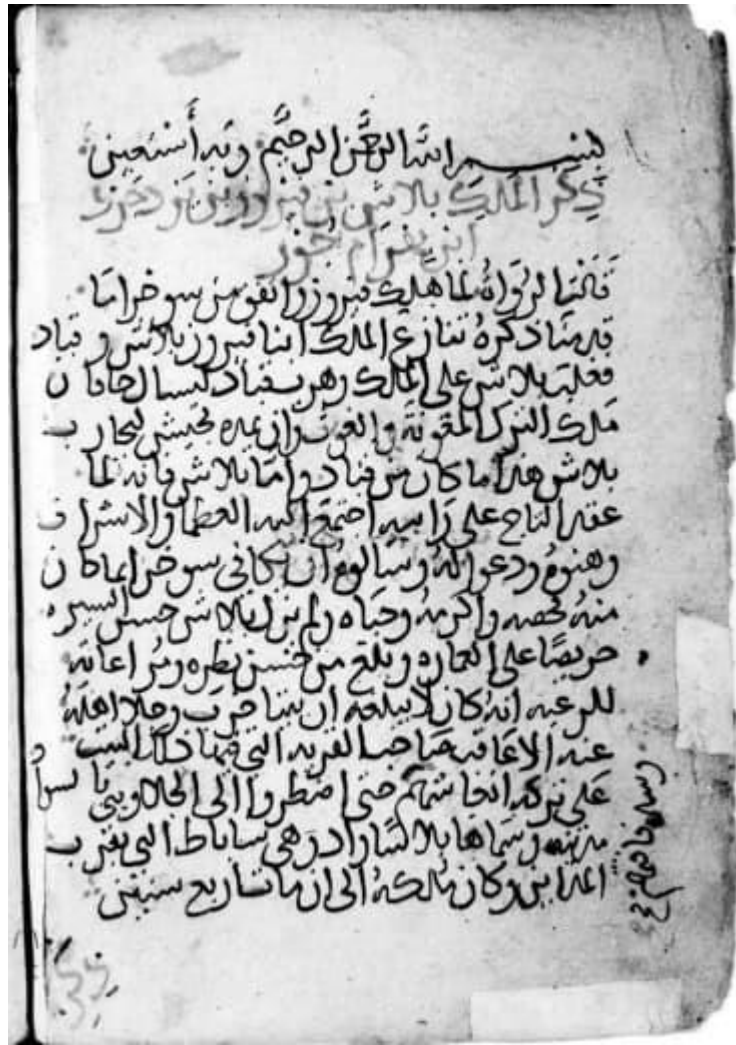 بسم الله الرحمن الرحيم وبه أستعين
ذكر الملك بلاش بن فيروز بن يزدجرد
ابن بهرام جور
قالت الرواة لما هلك فيروز واتفق من سوخرا ما
قدمنا ذكره تنازع الملك ابنا فيروز بلاش وقباد
فغلب بلاش على الملك وهرب قباد ليسال خاقان
ملك الترك المعونة والغوث وان يمده بجيش ليحارب
بلاش هذا ما كان من قباد واما بلاش فانه لما
عقد التاج على راسه اجتمع اليه العظما والاشراف
وهنوه ودعوا له وسالوه ان يكافى سوخرا بما كان
منه فخصه واكرمه وحباه ولم يزل بلاش حسن السيره
حريصا على العماره وبلغ من حسن نظره ومراعاته
للرعيه انه كان لا يبلغه ان بيتا خرب وجلا اهله
عنه الا عاقب صاحب القريه التي فيها ذلك البيت
على تركه انعاشهم حتى اضطروا الى الجلا وبنى بالسواد
مدينه وسماها بلاشاباد وهي ساباط التي بقرب
المداين وكان ملكه الى ان مات اربع سنين